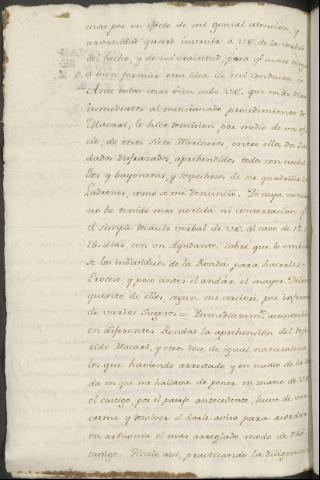 mas por un efecto de mi genial atencion, y
urvanidad quiero instruir á VE. de la verdad
del hecho, y de mi exactitud, para qe acaso
ó bien formar otra idea de mi conducta. =
Ante todas cosas bien sabe VE. que en los dias
inmediatos al mencionado procedimiento de
Macart, le hice remision por medio de un ofi
cio, de otros siete Marineros, entre ellos dos Sol
dados disfrazados, aprehendidos todos con cuchi
llos y bayonetas, y sospechosos de ser quadrilla de
Ladrones, como se me denunció. De cuya
no he tenido mas noticia ni contextacion q
el simple recaudo verbal de VE. al cavo de 12. ó
16. dias, con un Ayudante, sobre que le embia
se los individuos de la Ronda para hacerles
Proceso, y poco antes el andár el mayor Delin
quente de ellos, segun me cercioré, por informe
de varios Sugetos = Inmediatamte. acontecio
en diferentes Rondas la aprehension del refe
rido Macart, y otros doce de igual naturaleza
los que haviendo arrestado y en medio de la
da en que me hallava de poner en mano de VE.
el castigo, por el parafe antecedente, huve de
cerme y resolver el darle aviso para acordar
en armonia el mas arreglado modo de
. Hicelo asi, practicando la diligencia